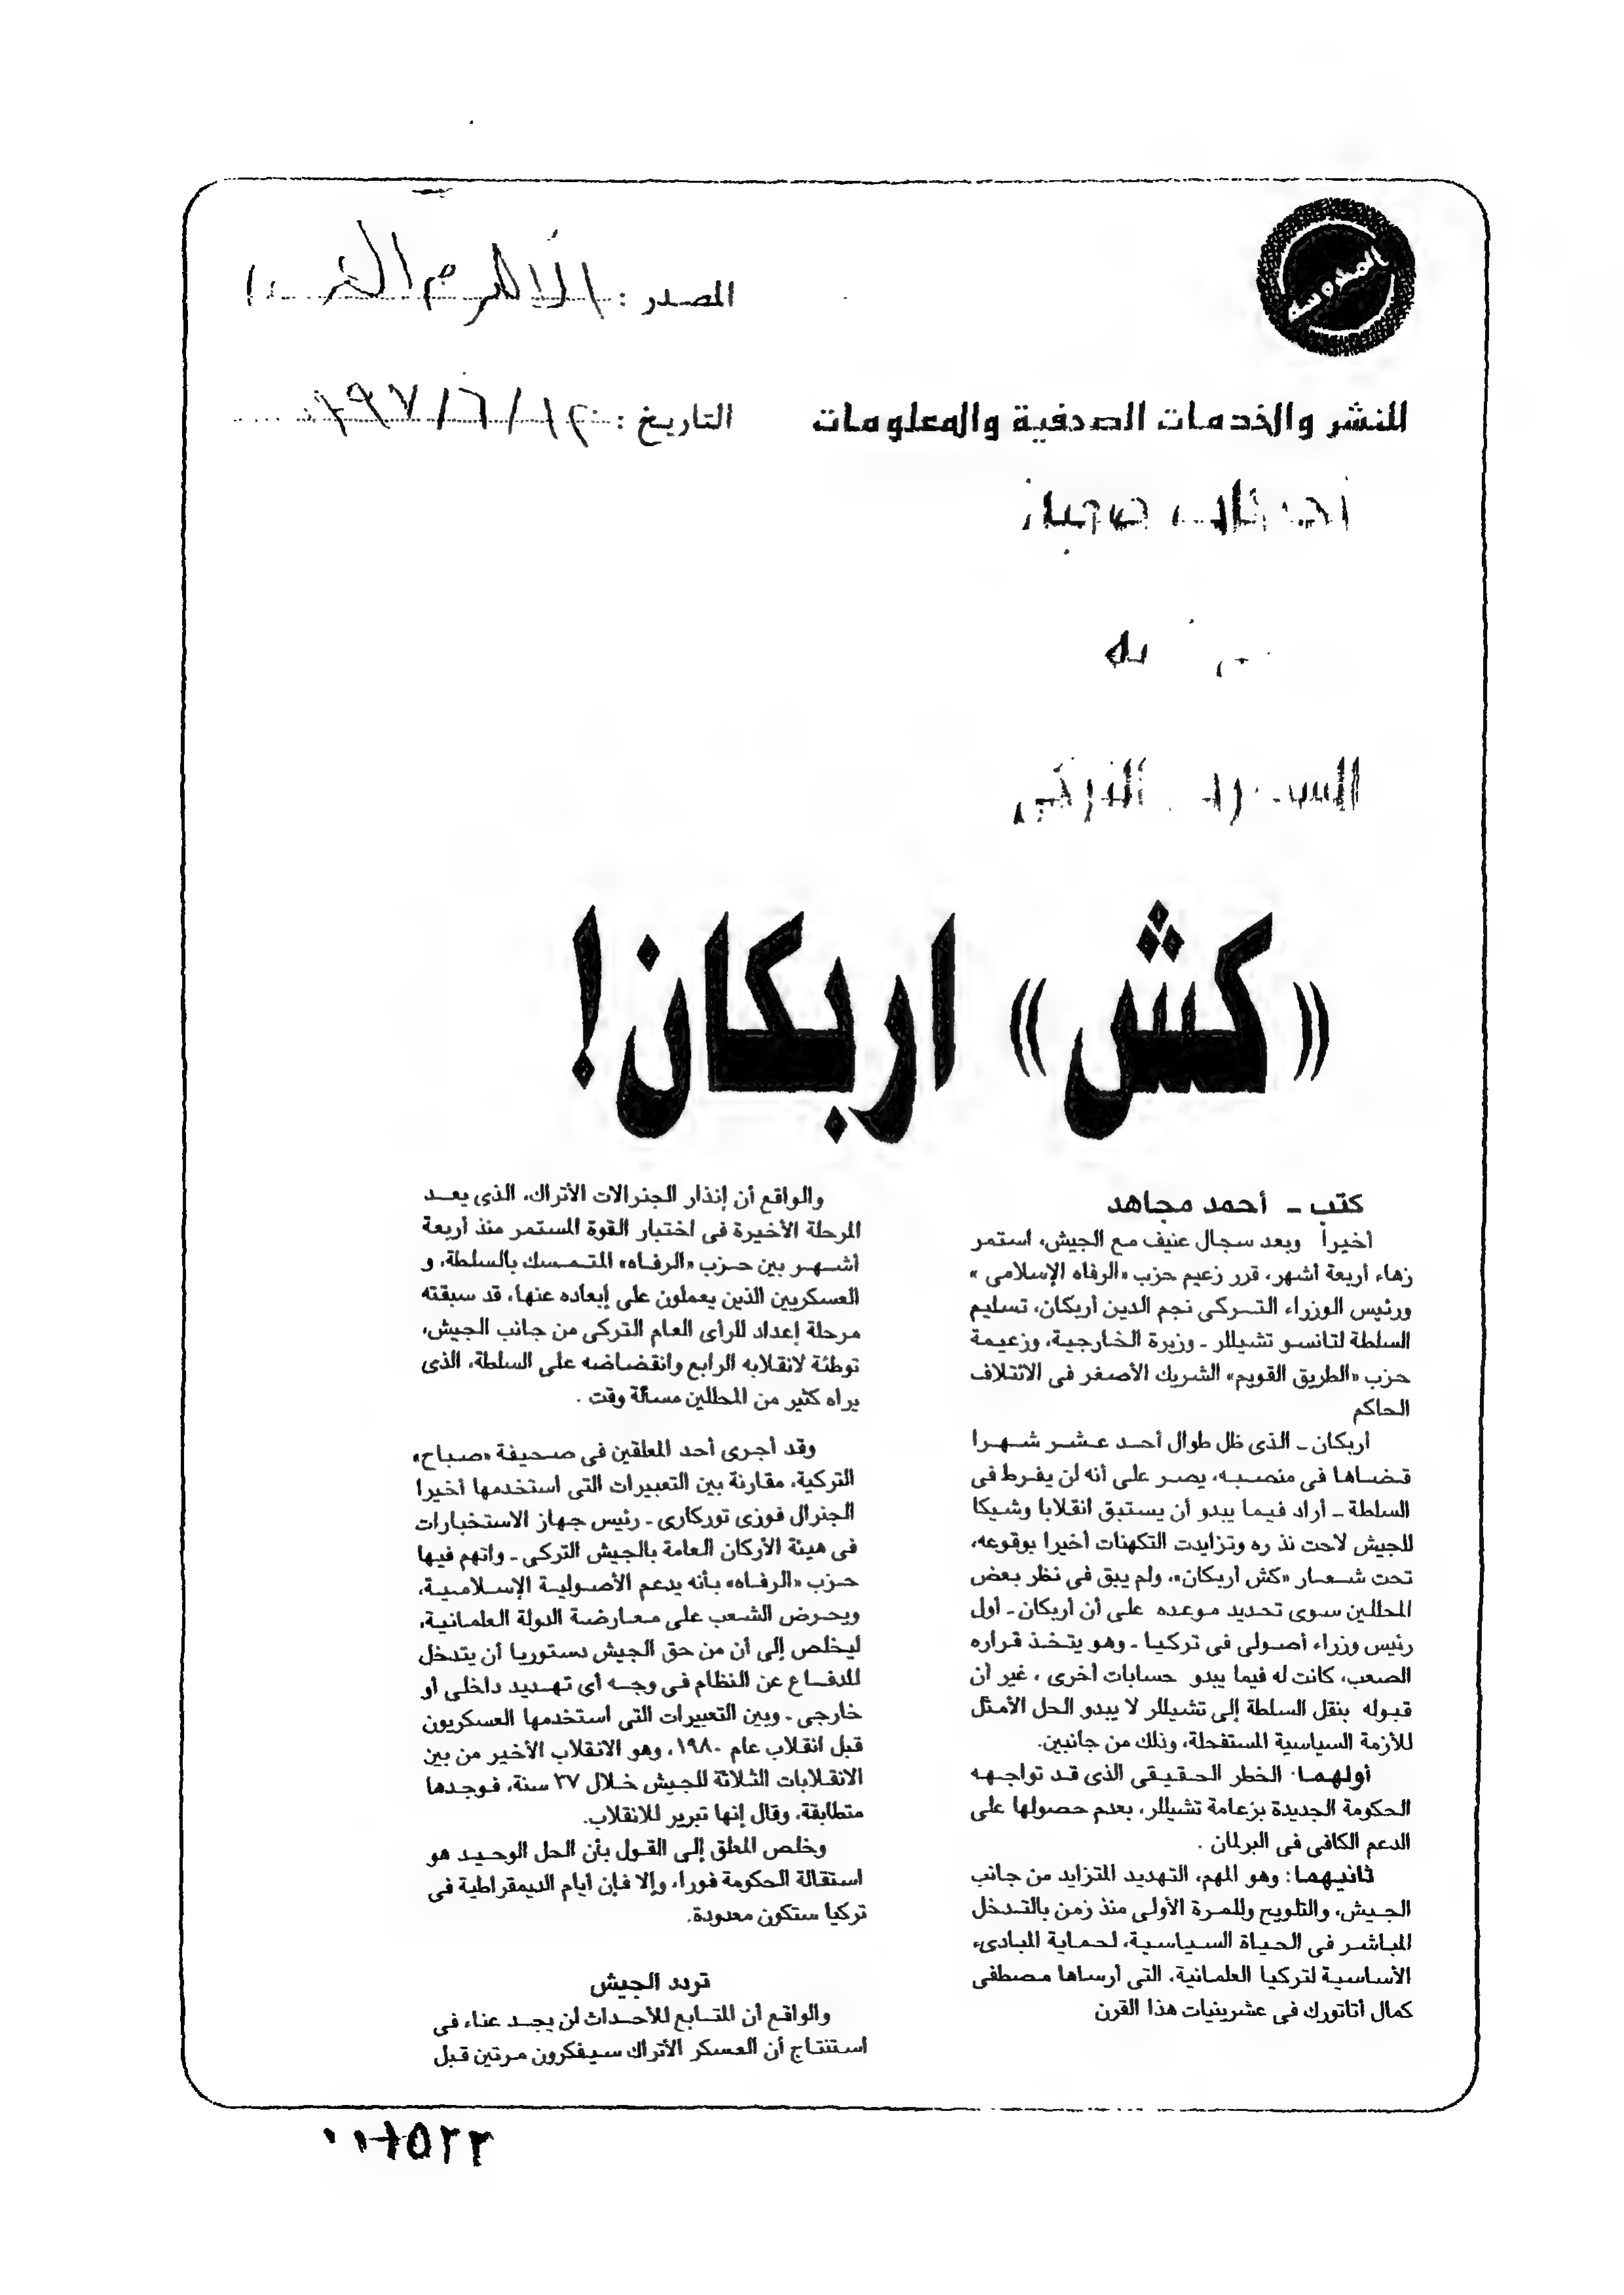 المصدر :
التاريخ : ١٢/٦/١٩٩٧
للنشر والخدمات الصحفية والمعلومات
«كش» اربكان!
كتب - أحمد مجاهد
أخيرا وبعد سجال عنيف مع الجيش، استمر
زهاء أربعة أشهر، قرر زعيم حزب «الرفاه الإسلامى»
ورئيس الوزراء التركى نجم الدين أربكان، تسليم
السلطة لتانسو تشيللر - وزيرة الخارجية، وزعيمة
حزب «الطريق القويم» الشريك الأصغر فى الائتلاف
الحاكم
أربكان - الذى ظل طوال أحد عشر شهرا
قضاها فى منصبه، يصر على أنه لن يفرط فى
السلطة - أراد فيما يبدو أن يستبق انقلابا وشيكا
للجيش لاحت نذ ره وتزايدت التكهنات أخيرا بوقوعه،
تحت شعار «كش أربكان»، ولم يبق فى نظر بعض
المحللين سوى تحديد موعده على أن أربكان - أول
رئيس وزراء أصولى فى تركيا - وهو يتخذ قراره
الصعب، كانت له فيما يبدو حسابات أخرى ، غير أن
قبوله بنقل السلطة إلى تشيللر لا يبدو الحل الأمثل
للأزمة السياسية المستفحلة، وذلك من جانبين.
أولهما: الخطر الحقيقى الذى قد تواجهه
الحكومة الجديدة بزعامة تشيللر، بعدم حصولها على
الدعم الكافى فى البرلمان .
ثانيهما: وهو المهم، التهديد المتزايد من جانب
الجيش، والتلويح وللمرة الأولى منذ زمن بالتدخل
المباشر فى الحياة السياسية، لحماية المبادىء
الأساسية لتركيا العلمانية، التى أرساها مصطفى
كمال أتاتورك فى عشرينيات هذا القرن
والواقع أن إنذار الجنرالات الأتراك، الذى يعد
المرحلة الأخيرة فى اختبار القوة المستمر منذ أربعة
أشهر بين حزب «الرفاه» المتمسك بالسلطة، و
العسكريين الذين يعملون على إبعاده عنها، قد سبقته
مرحلة إعداد للرأى العام التركى من جانب الجيش،
توطئة لانقلابه الرابع وانقضاضه على السلطة، الذى
يراه كثير من المحللين مسألة وقت .
وقد أجرى أحد المعلقين فى صحيفة «صباح»
التركية، مقارنة بين التعبيرات التى استخدمها أخيرا
الجنرال فوزى توركارى - رئيس جهاز الاستخبارات
فى هيئة الأركان العامة بالجيش التركى - واتهم فيها
حزب «الرفاه» بأنه يدعم الأصولية الإسلامية،
ويحرض الشعب على معارضة الدولة العلمانية،
ليخلص إلى أن من حق الجيش دستوريا أن يتدخل
للدفاع عن النظام فى وجه أى تهديد داخلى أو
خارجى - وبين التعبيرات التى استخدمها العسكريون
قبل انقلاب عام ١٩٨٠، وهو الانقلاب الأخير من بين
الانقلابات الثلاثة للجيش خلال ٣٧ سنة، فوجدها
متطابقة، وقال إنها تبرير للانقلاب.
وخلص المعلق إلى القول بأن الحل الوحيد هو
استقالة الحكومة فورا، وإلا فإن أيام الديمقراطية فى
تركيا ستكون معدودة.
تردد الجيش
والواقع أن المتابع للأحداث لن يجد عناء فى
استنتاج أن العسكر الأتراك سيفكرون مرتين قبل